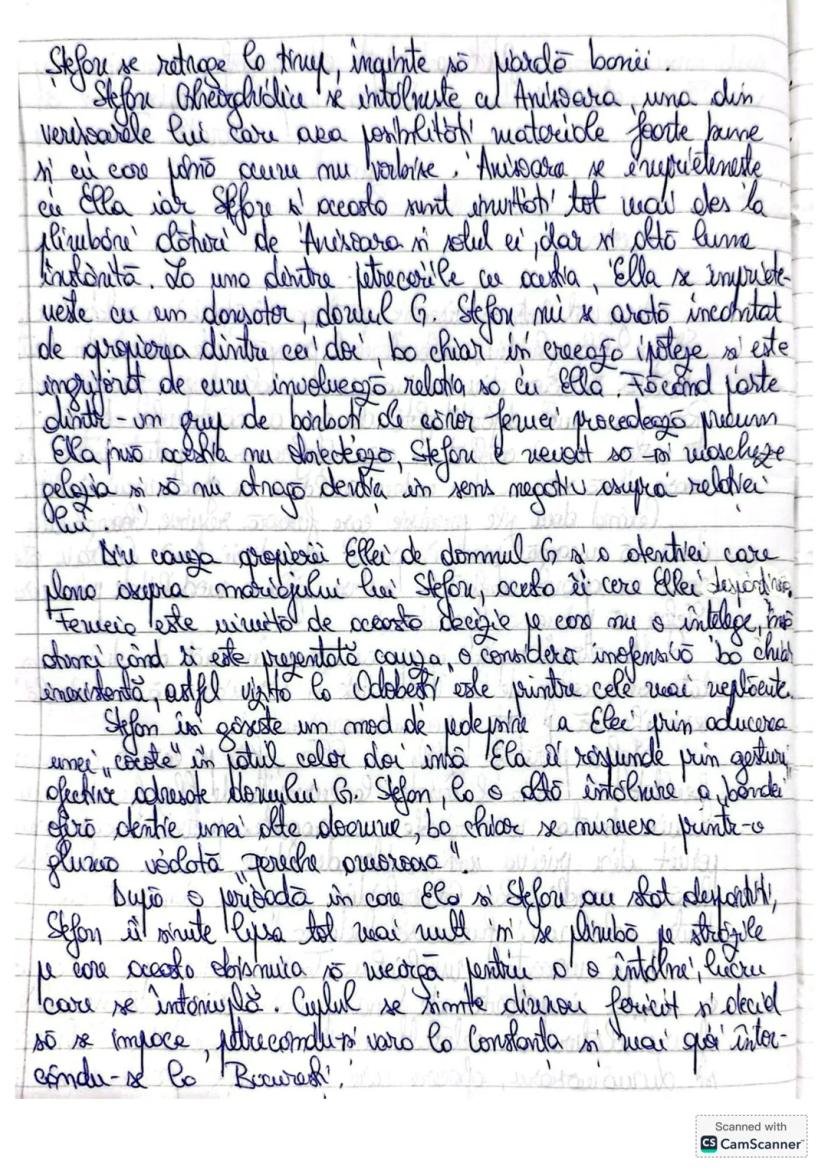 Ștefan se retrage la timp, înainte să piardă banii.
Ștefan Gheorghidiu se întâlnește cu Anișoara, una din
verișoarele lui care avea posibilități materiale foarte bune
și cu care până acum nu vorbise. Anișoara se împrietenește
cu Ella iar Ștefan și aceasta sunt invitați tot mai des la
plimbări alături de Anișoara și soțul ei, dar și altă lume
înstărită. La una dintre petrecerile cu aceștia, Ella se împriete-
nește cu un dansator, domnul G. Ștefan nu se arată încântat
de apropierea dintre cei doi, ba chiar își creează ipoteze și este
îngrijorat de cum involuează relația sa cu Ella. Făcând parte
dintr-un grup de bărbați ale căror femei procedează precum
Ella însă aceștia nu obiectează, Ștefan e nevoit să-și mascheze
gelozia și să nu atragă atenția în sens negativ asupra relației
lui.
Din cauza apropierii Ellei de domnul G și a atenției care
plana asupra mariajului lui Ștefan, acesta îi cere Ellei despărțirea.
Femeia este uimită de această decizie pe care nu o înțelege, însă
atunci când îi este prezentată cauza, o consideră inofensivă ba chiar
inexistentă, astfel vizita la Odobești este printre cele mai neplăcute.
Ștefan își găsește un mod de pedepsire a Elei prin aducerea
unei „cocote” în patul celor doi însă Ela îi răspunde prin gesturi
afective adresate domnului G. Ștefan, la o altă întâlnire a „bandei”
oferă atenție unei alte doamne, ba chiar se numesc printr-o
glumă vădată „pereche amoroasă”.
După o perioadă în care Ela și Ștefan au stat despărțiți,
Ștefan îi simte lipsa tot mai mult și se plimbă pe străzile
pe care aceasta obișnuia să meargă pentru a o întâlni, lucru
care se întâmplă. Cuplul se simte dinnou fericit și decid
să se împace, petrecându-și vara la Constanța și mai apoi întor-
cându-se la București.
Scanned with
CS CamScanner